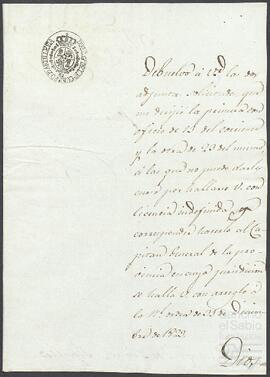 Debuelvo á Vd las dos
adjuntas solicitudes que
me dirijió la primera con
oficio de 13 del corriente
y la otra de 23 del mismo
á las que no puedo darles
curso por hallarse V. con
licencia indefinida y
corresponder hacerlo al Ca-
pitan General de la pro-
vincia en cuya jurisdiccion
se halla V. con arreglo á
la Rl. orden de 31 de Diciem-
bre de 1829.
Dios